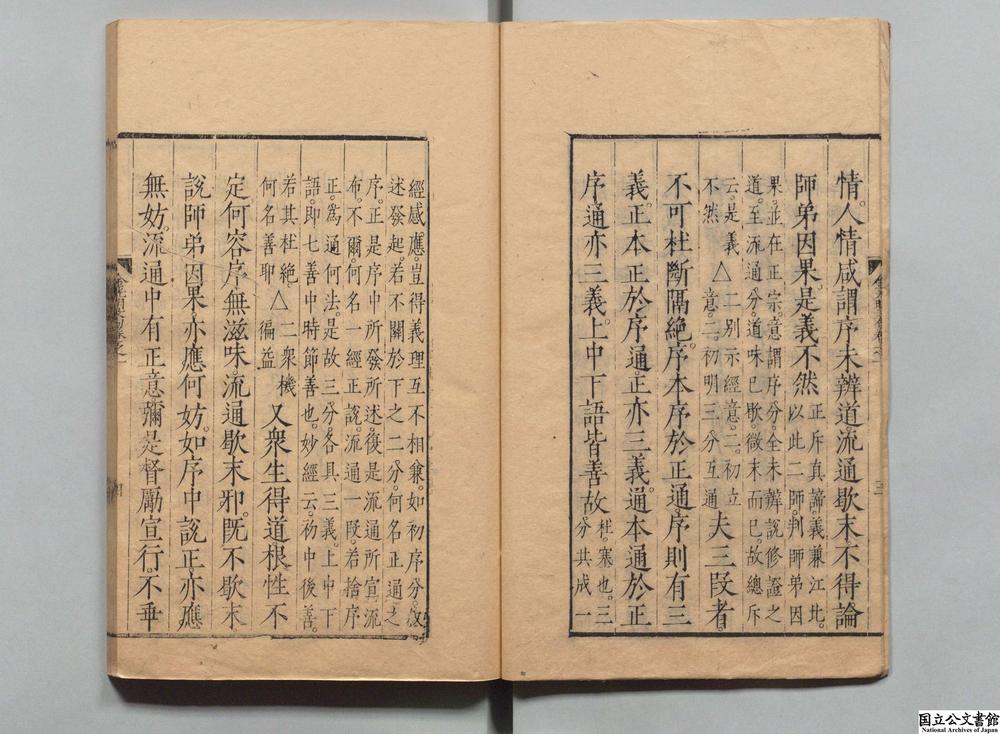 情。人情咸謂序未辨道。流通歇末不得論
師弟因果。是義不然
正斥真諦。義兼江北。
以此二師。判師弟因
果。並在正宗。意謂序分。全未辨說修證之
道。至流通分。道味已歇。微末而已。故總斥
云。是義
不然
△二別示經意。二。初立
意。二。初明三分互通
夫三段者。
不可杜斷隔絶。序本序於正通。序則有三
義。正本正於序通。正亦三義。通本通於正
序通亦三義。上中下語皆善故
杜。塞也。三
分共成一
經感應。豈得義理互不相兼。如初序分。叙
述發起。若不關於下之二分。何名正通之
序。正是序中所發所述。復是流通所宣流
布。不爾。何名一經正說。流通一段。若捨序
正。爲通何法。是故三分。各具三義。上中下
語。即七善中時節善也。妙經云。初中後善。
若其杜絶。
何名善耶
△二衆機
徧益
又衆生得道根性不
定何容序無滋味流通歇末邪。既不歇末。
說師弟因果亦應何妨。如序中說正。亦應
無妨。流通中有正意彌是督勵宣行。不垂
国立公文書館
National Archives of Japan